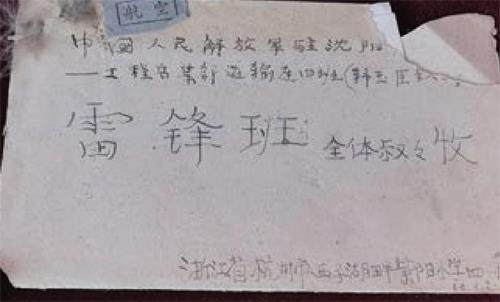 航空
中国人民解放军驻沈阳
工程兵某部运输连四班
雷锋班 全体叔叔收
浙江省杭州市西子湖畔 小学四